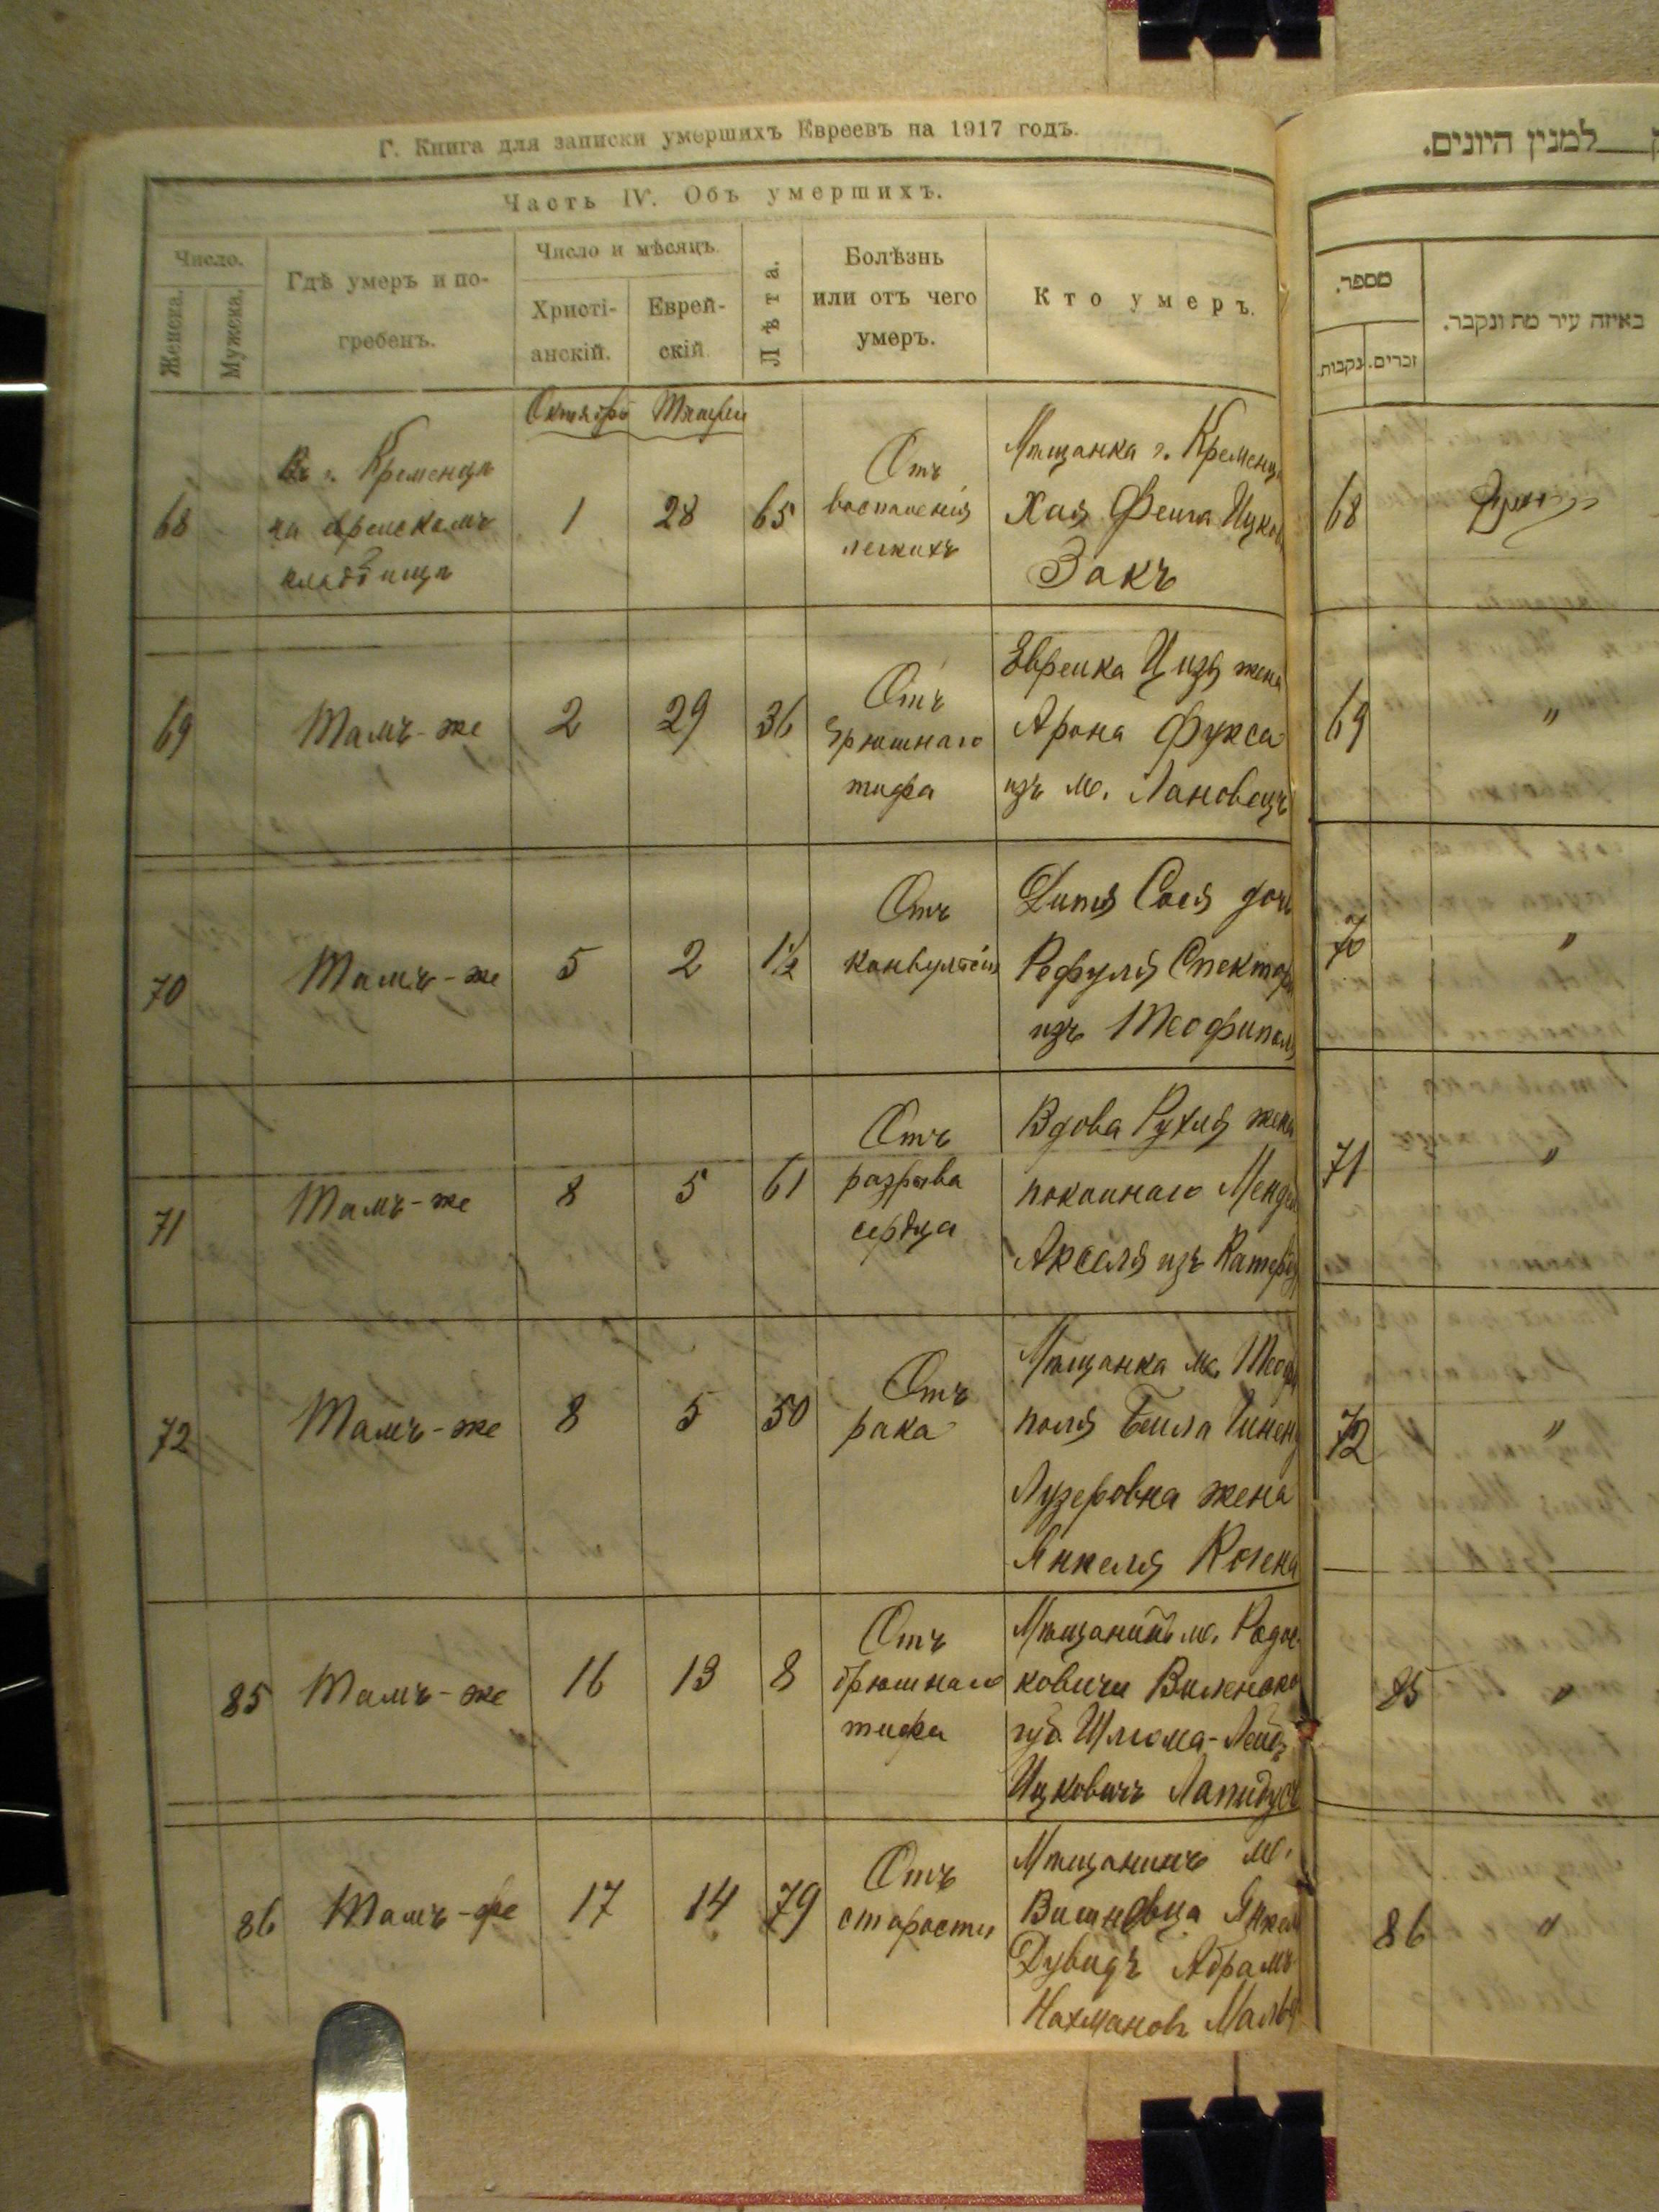 Г. Книга для записки умершихъ Евреевъ на 1917 годъ.
Часть IV. Объ умершихъ.
Число.
Женска.
Мужска.
Гдѣ умеръ и по-
гребенъ.
Число и мѣсяцъ.
Христі-
анскій.
Еврей-
скій.
Лѣта.
Болѣзнь
или отъ чего
умеръ.
Кто умеръ.
Октября Тишри
68
Въ г. Кременцѣ
на еврейскомъ
кладбищѣ
1
28
65
Отъ
воспаленія
легкихъ
Мѣщанка г. Кременца
Хая Фейга Ицков
Закъ
69
Тамъ-же
2
29
36
Отъ
брюшнаго
тифа
Еврейка жена
Арона Фукса
изъ м. Лановецъ
70
Тамъ-же
5
2
1½
Отъ
конвульсій
Дитя Сося дочь
Рефуля Спектора
изъ Теофиполя
71
Тамъ-же
8
5
61
Отъ
разрыва
сердца
Вдова Рухля жена
покойнаго Мендел
Акселя изъ
72
Тамъ-же
8
5
50
Отъ
рака
Мѣщанка м. Теофи
поля Бейла
Лузеровна жена
Янкеля
85
Тамъ-же
16
13
8
Отъ
брюшнаго
тифа
Мѣщанинъ м. Радош-
ковичи Виленско
губ. Шлома-Лейб
Ицковичъ Лапидусъ
86
Тамъ-же
17
14
79
Отъ
старости
Мѣщанинъ м.
Вишневца Янкел
Дувидъ Абрамъ
Нахмановъ
למנין היונים.
מספר.
נקבות.
זכרים.
באיזה עיר מת ונקבר.
68
69 "
70 "
71 "
72 "
85 "
86 "